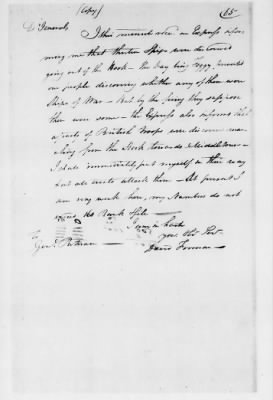 (Copy) 65
Dr General
I this moment rec'd an Express infor
ming me that thirteen Ships were discovered
going out of the Hook - the Day being Foggy prevented
our people discovering whether any of them were
Ships of War - But by the firing they suppose
there were some - the Express also informs that
a party of British Troops are discovered
from the Hook towards Middletown -
I shall immediately put myself in their way
to attack them - At present I
am very weak here, my Numbers do not
exceed 160 Rank & file -
I am in haste
your
David Forman
To
Genl Putnam